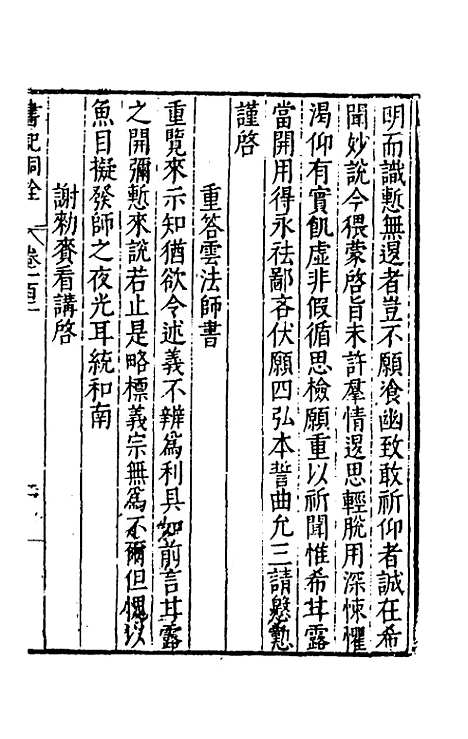 明而識慙無邊者豈不願飡幽致敢祈仰者誠在希
聞妙說今猥蒙啓旨未許羣情邊思輕脫用深悚懼
渴仰有實飢虛非假循思檢願重以祈聞惟希甘露
當開用得永袪鄙吝伏願四弘本誓曲允三請慇懃
謹啓
重答雲法師書
重覽來示知猶欲令述義不辨爲利具如前言甘露
之開彌慙來說若止是略標義宗無爲不爾但愧以
魚目擬發師之夜光耳統和南
謝勑賚看講啓
書記洞詮 卷一百二